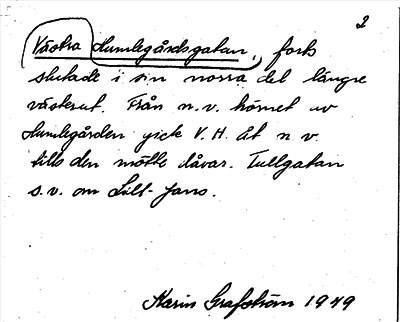 2
Västra Humlegårdsgatan, forts
slutade i sin norra del längre
västerut. Från n.v. hörnet av
Humlegården gick V.H. åt n v.
tills den mötte dåvar. Tullgatan
s.v. om Lill-Jans.
Karin Grafström 1949